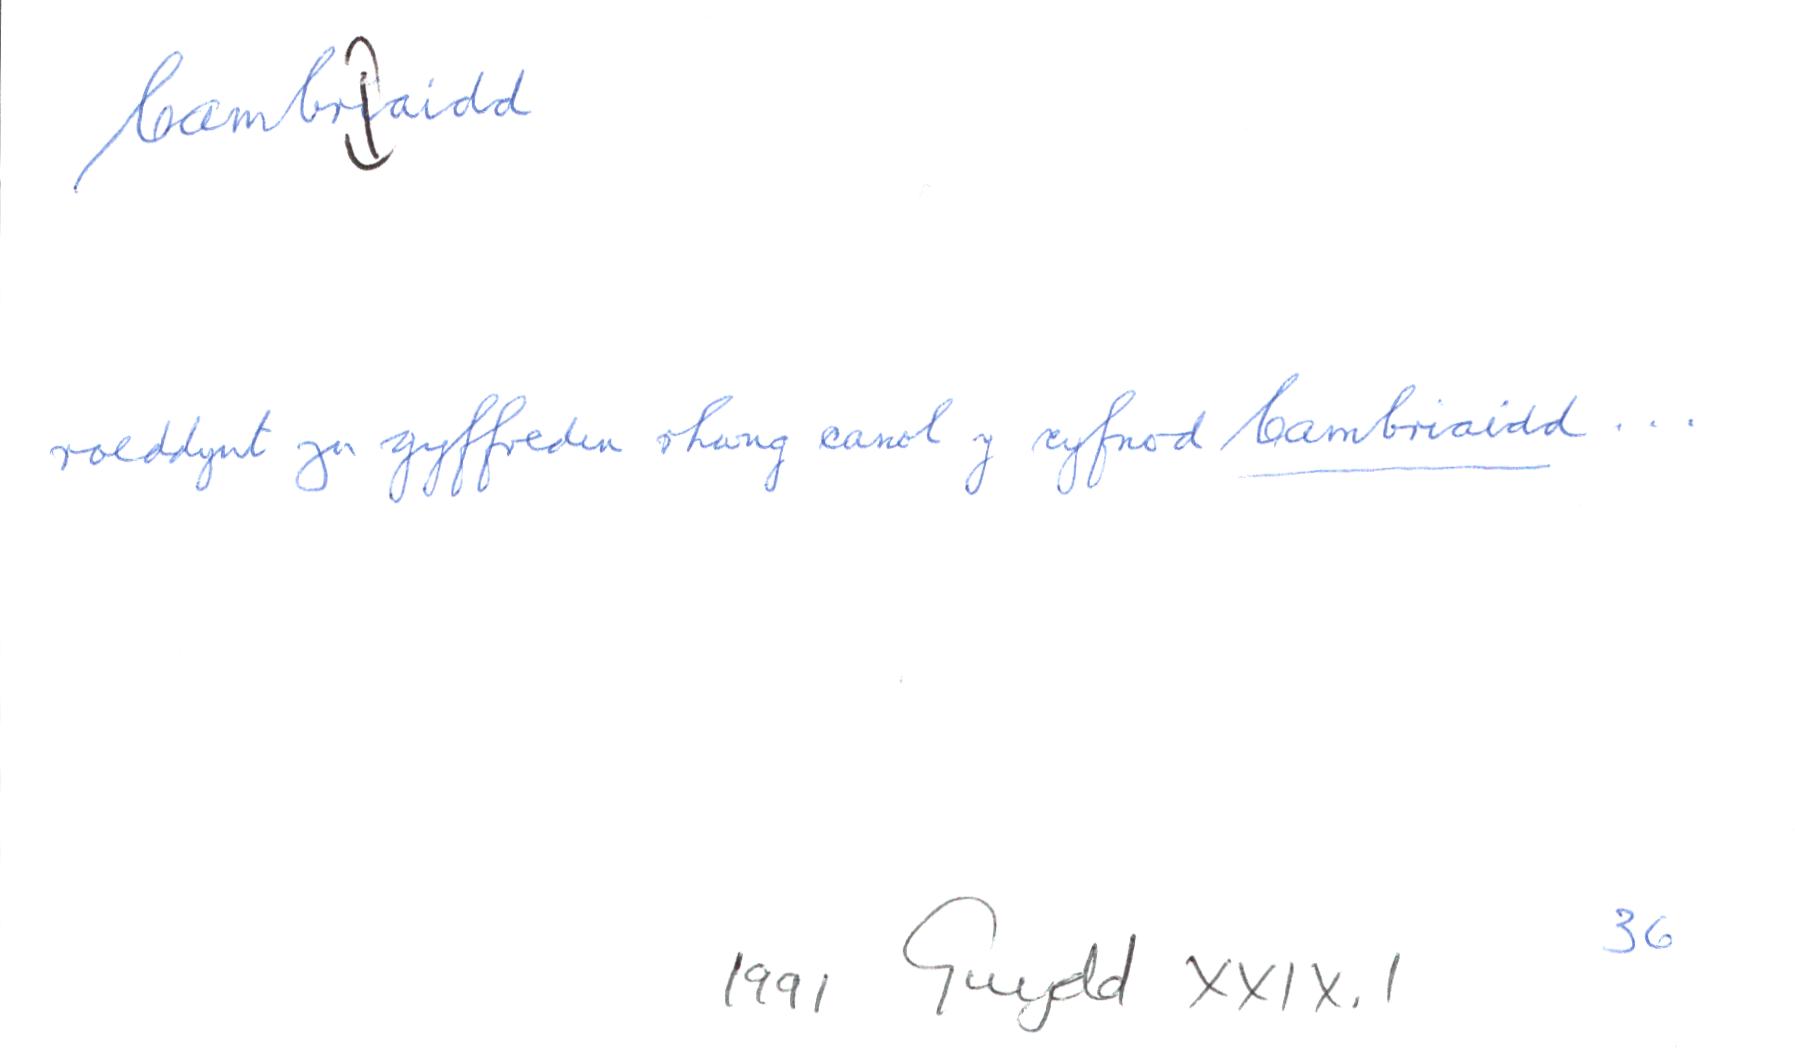 Cambr(i)aidd
roeddynt yn gyffreden rhwng canol y cyfnod Cambriaidd ...
36
1991 Gwydd XXIX. 1